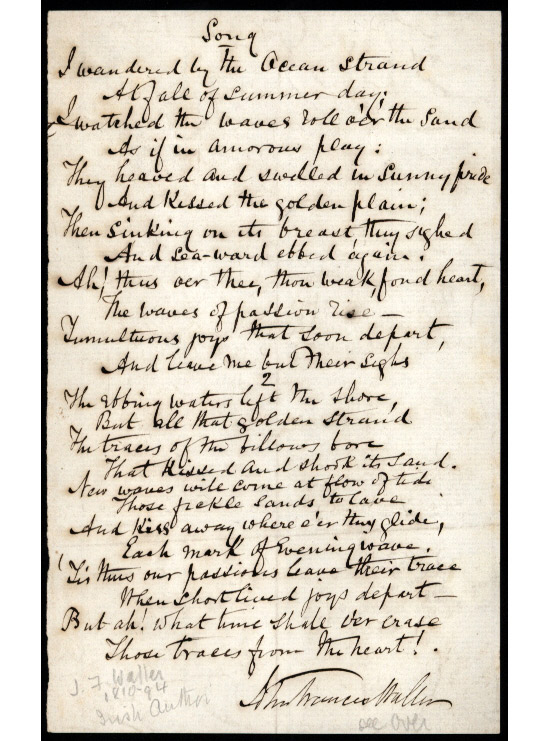 Song
I wandered by the Ocean Strand
At fall of summer day;
I watched the waves roll o'er the Sand
As if in amorous play:
They heaved and swelled in Sunny pride
And Kissed the golden plain;
Then Sinking on its breast they sighed
And Sea-ward ebbed again.
Ah! thus oer thee, thou weak, fond heart,
The waves of passion rise —
Tumultuous joys that soon depart,
And leave me but their Sighs
2
The Ebbing waters left the Shore,
But all that golden Strand
The traces of the billows bore
That Kissed and Shook its Sand.
New waves will come at flow of tide
Those fickle Sands to lave
And Kiss away where e'er they glide,
Each mark of Evening wave.
'Tis thus our passions leave their trace
When Short lived joys depart —
But ah! what time Shall e'er erase
Those traces from the heart!.
John Francis Waller
J. F. Waller
1810-94
Irish Author
see over